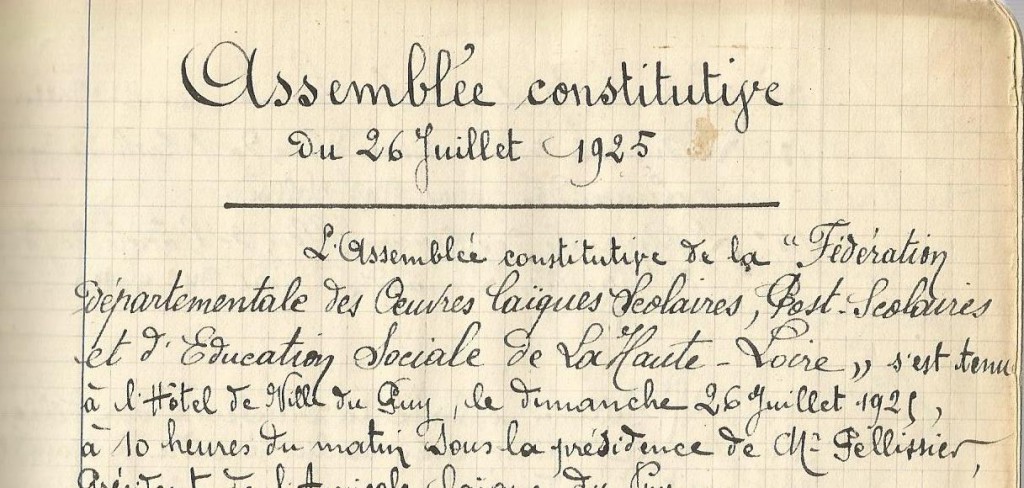 Assemblée constitutive
du 26 Juillet 1925
L'Assemblée constitutive de la "Fédération
départementale des Oeuvres laïques Scolaires, Post-Scolaires
et d'Education Sociale de La Haute-Loire" s'est tenu
à l'Hôtel de Ville du Puy, le dimanche 26 Juillet 1925,
à 10 heures du matin sous la présidence de Mr Pellissier,
Président de l'Amicale laïque du Puy